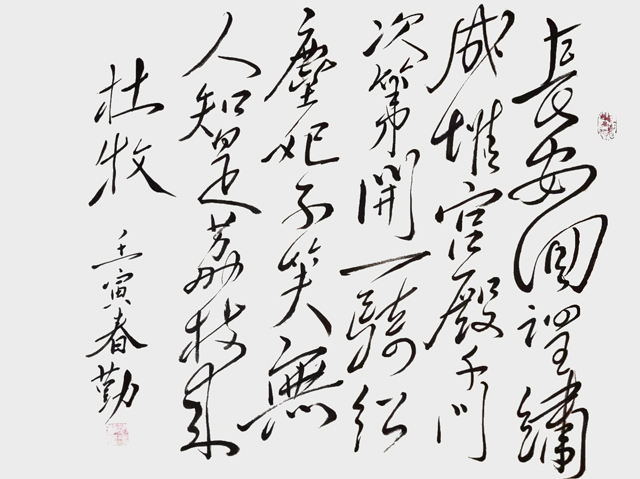 長安回望繡
成堆宮殿千門
次第開一騎紅
塵妃子笑無
人知是荔枝來
杜牧
壬寅春勤